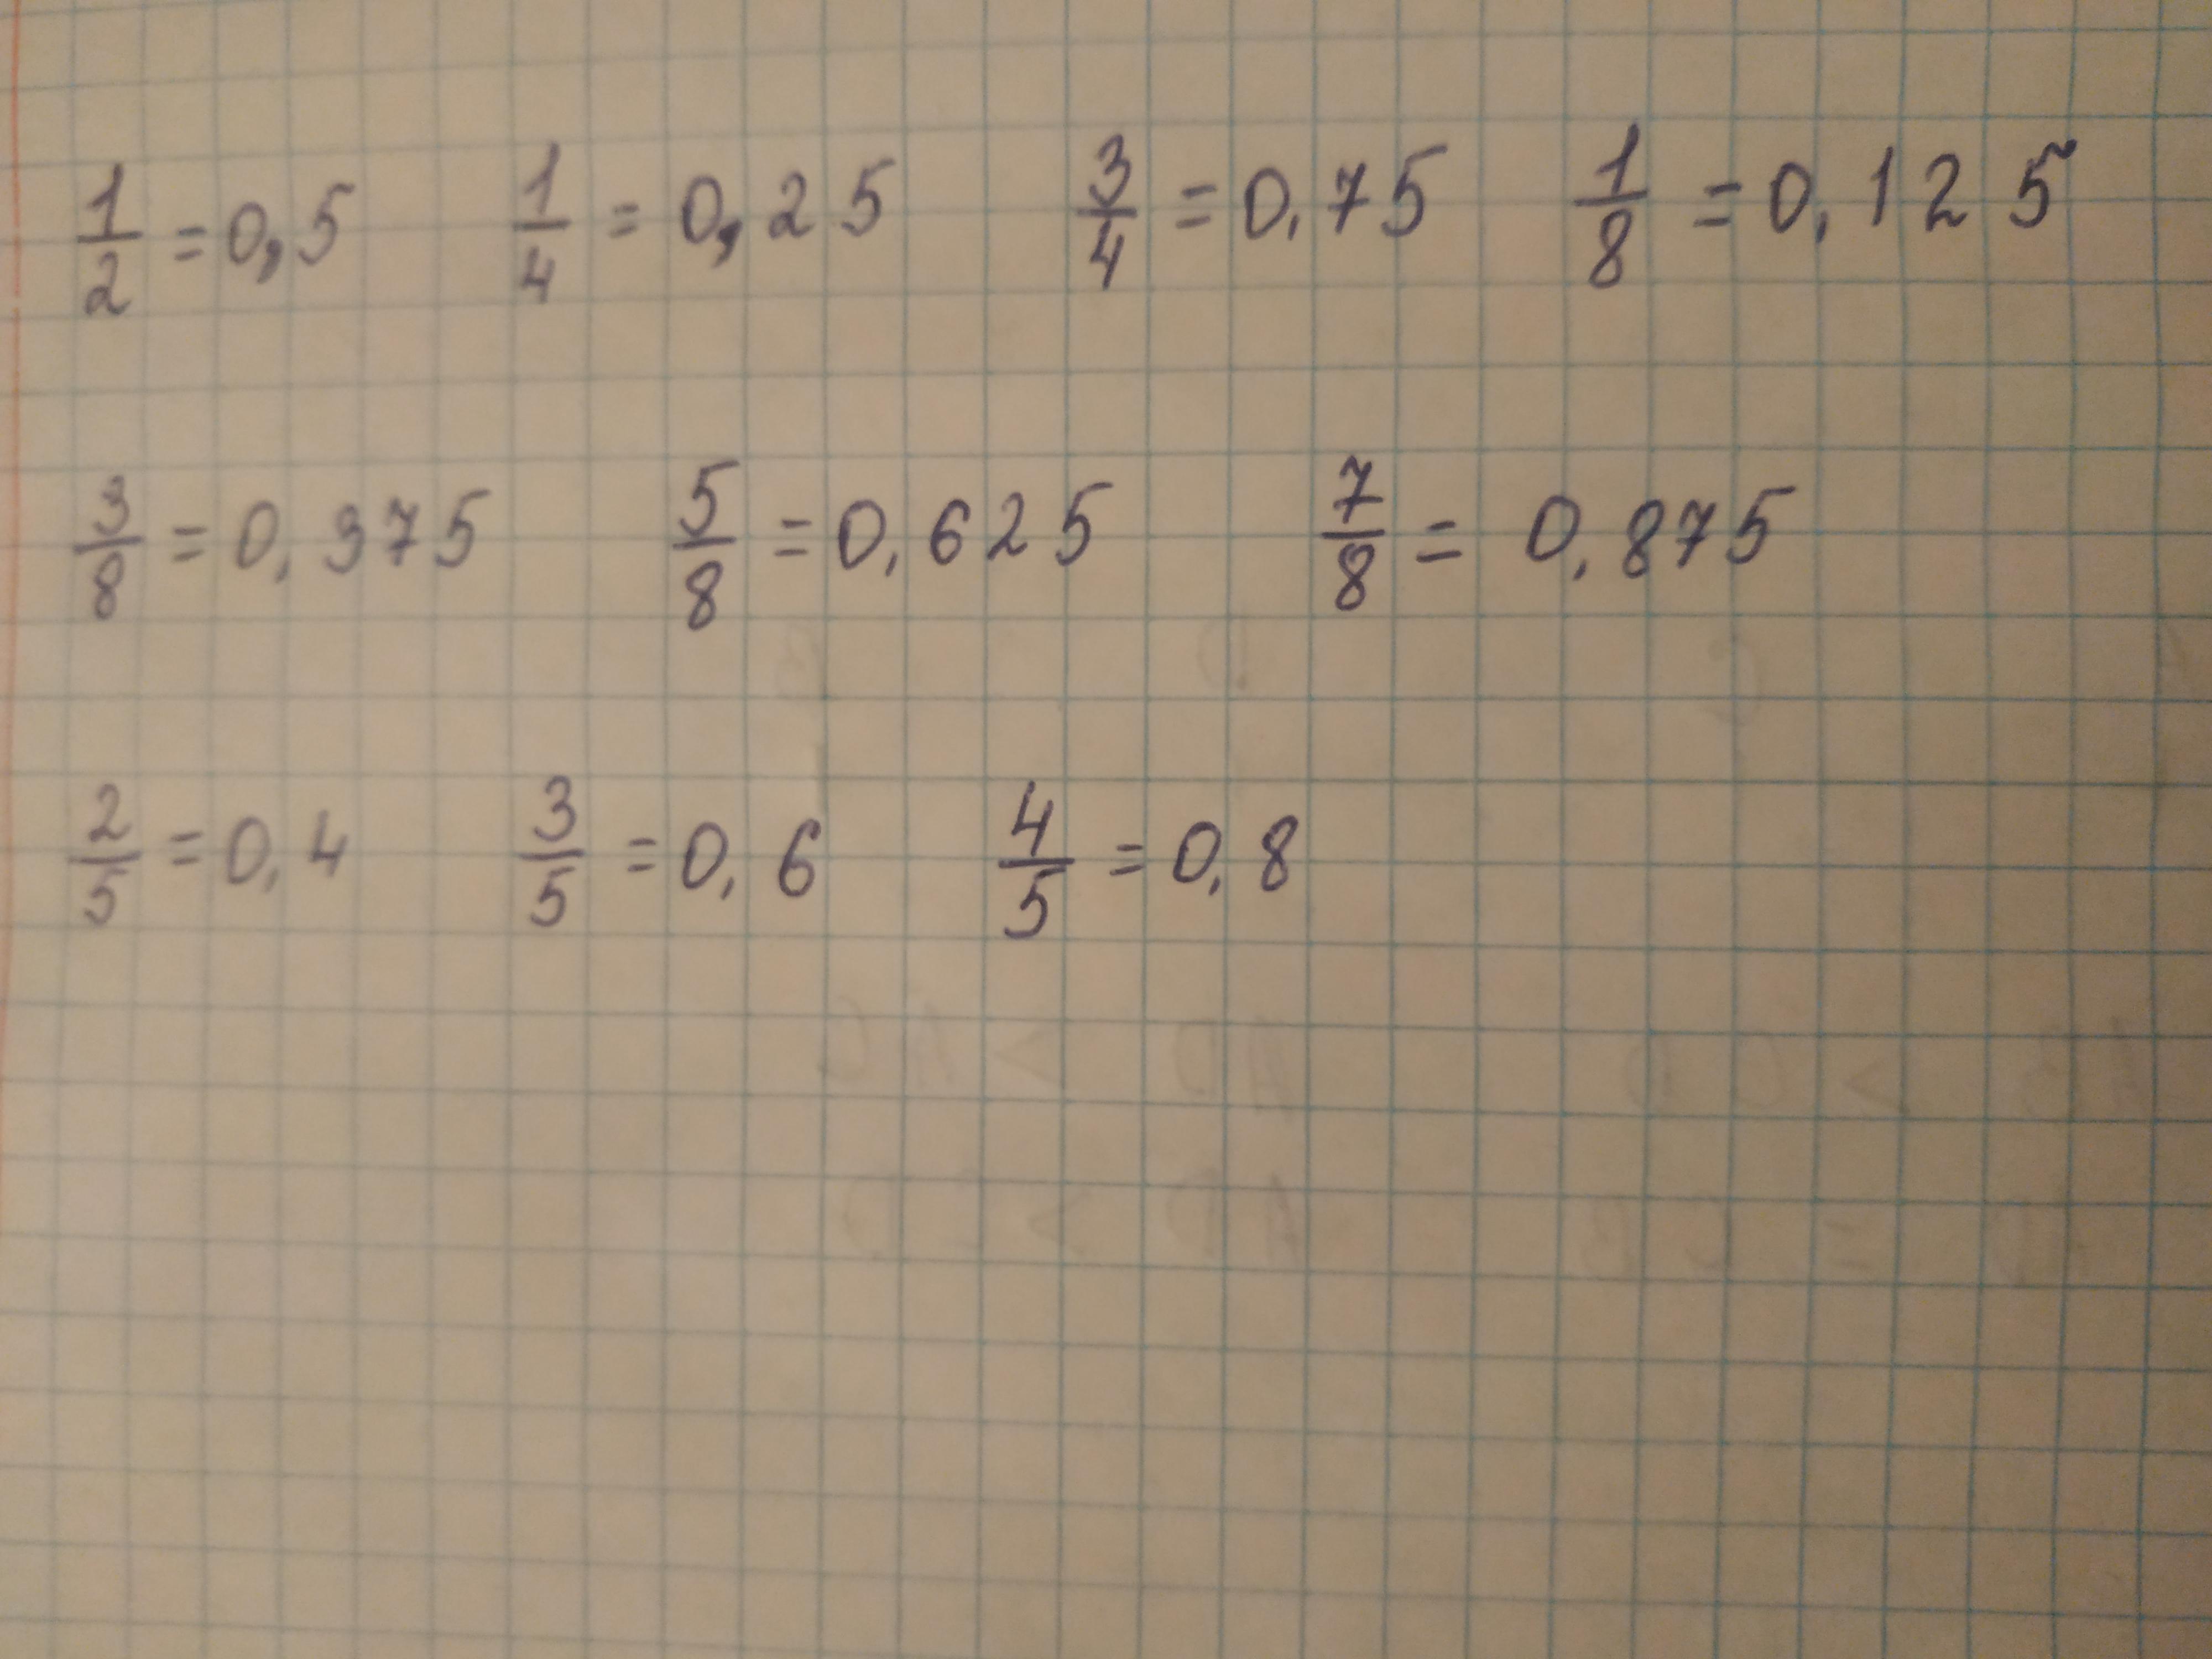 1/2 = 0,5 1/4 = 0,25 3/4 = 0,75 1/8 = 0,125
3/8 = 0,375 5/8 = 0,625 7/8 = 0,875
2/5 = 0,4 3/5 = 0,6 4/5 = 0,8